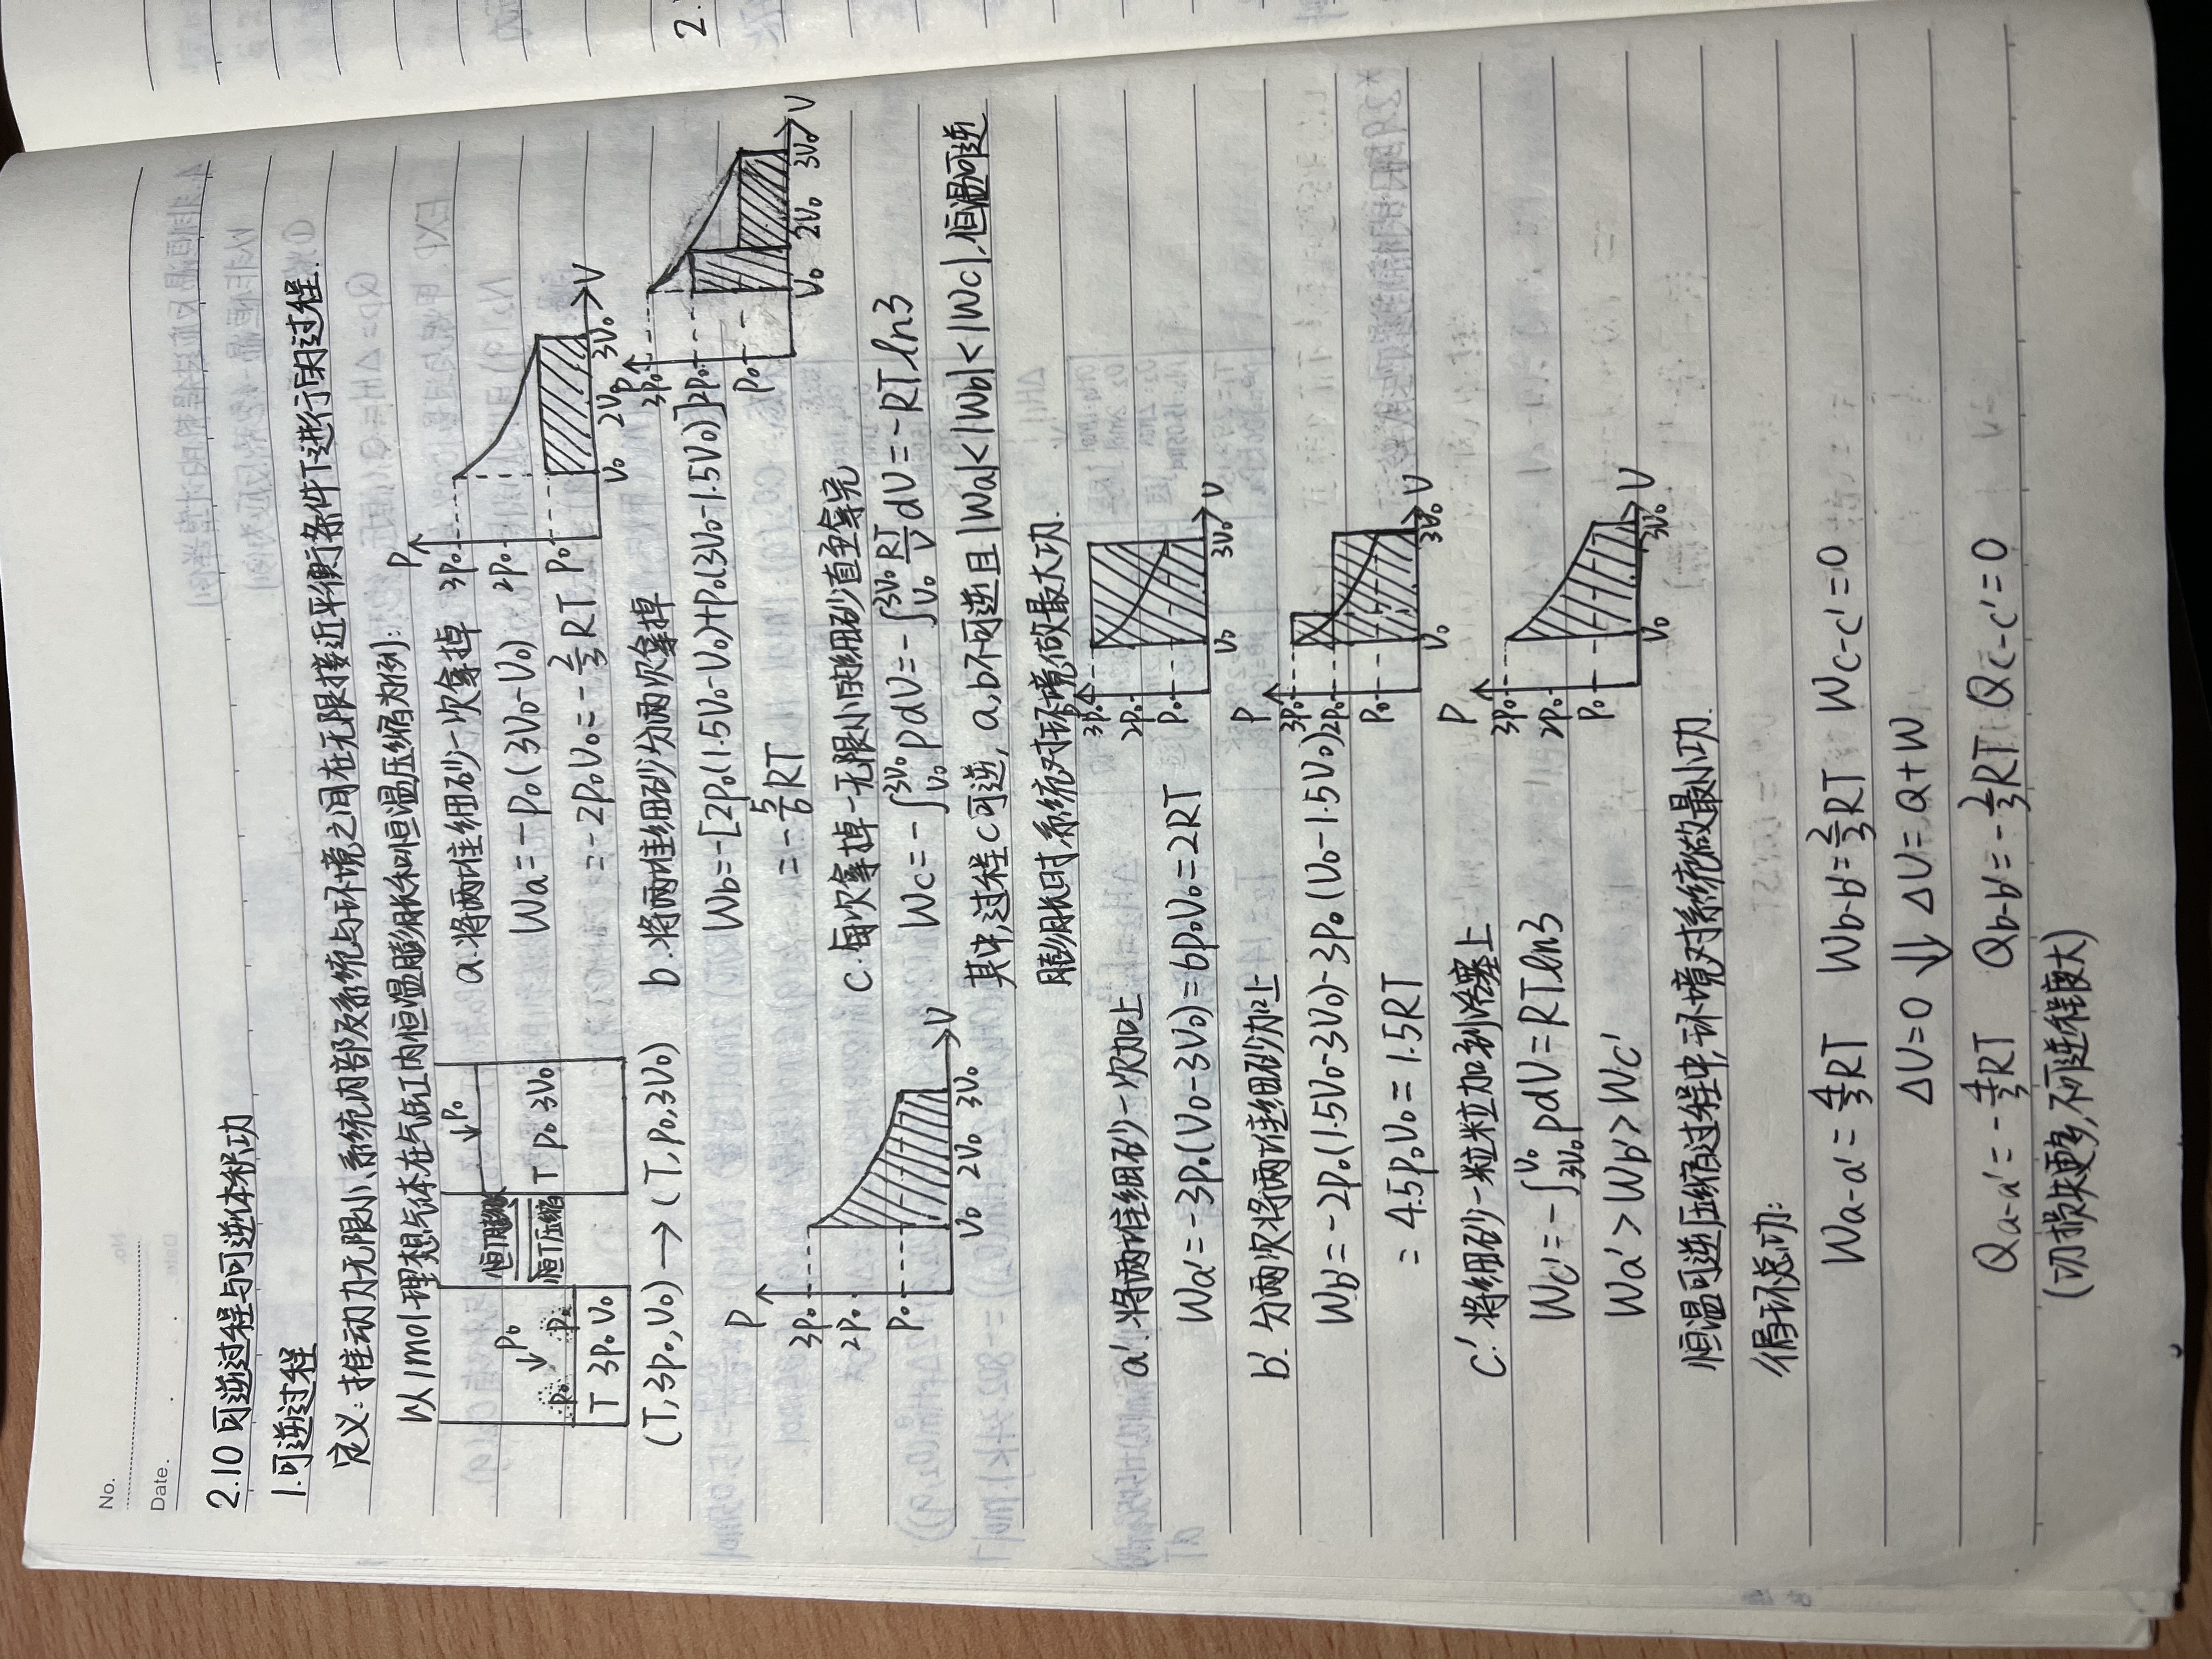 No.
Date.
2.10 可逆过程与可逆体积功
1.可逆过程
定义:推动力无限小、系统内部及系统与环境之间在无限接近平衡条件下进行的过程.
以1mol理想气体在气缸内恒温膨胀和恒温压缩为例:
p₀
p₀ p₀
T 3p₀ V₀
恒T膨胀
恒T压缩
p₀
T p₀ 3V₀
(T,3p₀,V₀)→(T,p₀,3V₀)
a.将两堆细砂一次拿掉
Wa=-p₀(3V₀-V₀)
=-2p₀V₀=-2/3RT
P
3p₀
2p₀
p₀
V₀ 2V₀ 3V₀ V
b.将两堆细砂分两次拿掉
Wb=-[2p₀(1.5V₀-V₀)+p₀(3V₀-1.5V₀)]
=-5/6RT
P
3p₀
2p₀
p₀
V₀ 2V₀ 3V₀ V
P
3p₀
2p₀
p₀
V₀ 2V₀ 3V₀ V
c.每次拿掉一无限小的细砂直至拿完
Wc=-∫_{V₀}^{3V₀}pdV=-∫_{V₀}^{3V₀}RT/V dV=-RTln3
其中,过程c可逆,a,b不可逆且|Wa|<|Wb|<|Wc|,恒温可逆
膨胀时,系统对环境做最大功.
a'.将两堆细砂一次加上
Wa'=-3p₀(V₀-3V₀)=6p₀V₀=2RT
3p₀
2p₀
p₀
V₀ 3V₀ V
b'.分两次将两堆细砂加上
Wb'=-2p₀(1.5V₀-3V₀)-3p₀(V₀-1.5V₀)
=4.5p₀V₀=1.5RT
P
3p₀
2p₀
p₀
V₀ 3V₀ V
c'.将细砂一粒粒加到活塞上
Wc'=-∫_{3V₀}^{V₀}pdV=RTln3
Wa'>Wb'>Wc'
P
3p₀
2p₀
p₀
V₀ 3V₀ V
恒温可逆压缩过程中,环境对系统做最小功.
循环总功:
Wa-a'=4/3RT Wb-b'=2/3RT Wc-c'=0
ΔU=0 ⇓ ΔU=Q+W
Qa-a'=-4/3RT Qb-b'=-2/3RT Qc-c'=0
(功损失更多,不可逆程度大)
2.